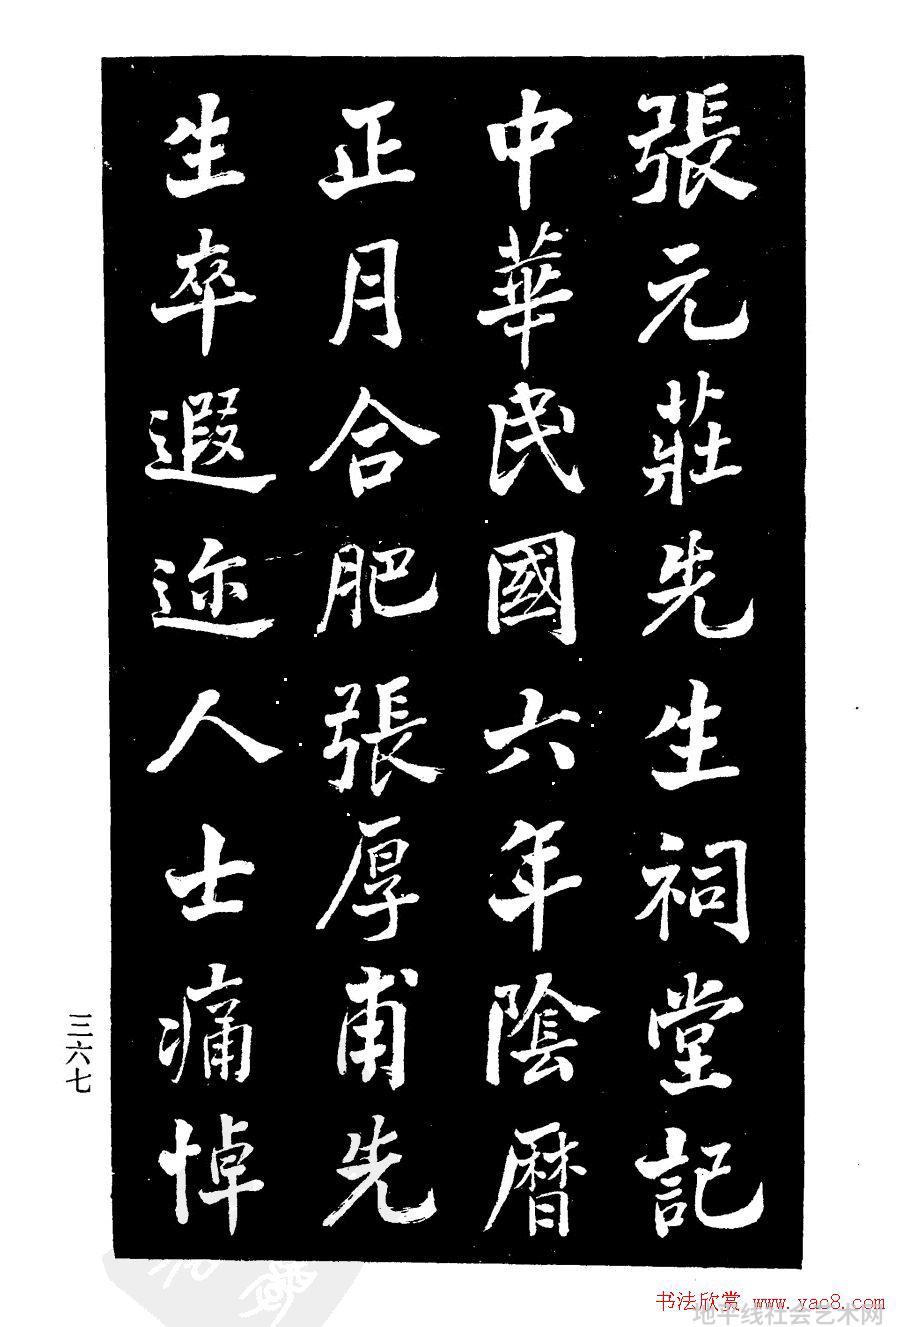 張元莊先生祠堂記
中華民國六年陰曆
正月合肥張厚甫先
生卒遐迩人士痛悼
三六七
书法欣赏 www.yac8.com
地平线社会艺术网